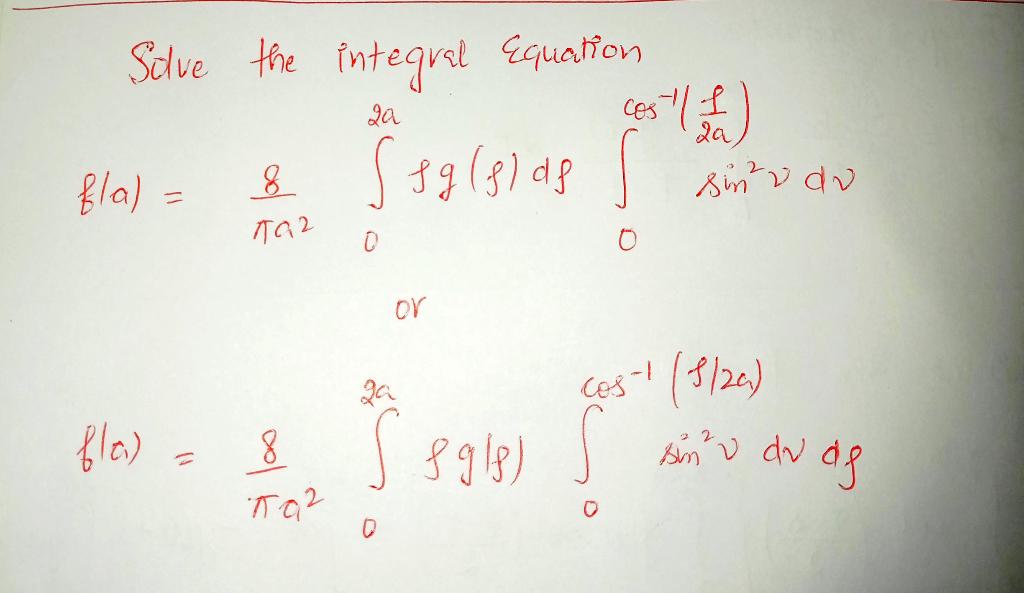 Solve the integral Equation
f(a) = 8/πa² ∫₀^{2a} ρg(ρ) dρ ∫₀^{cos⁻¹(ρ/2a)} sin²ν dν
or
f(a) = 8/πa² ∫₀^{2a} ρg(ρ) ∫₀^{cos⁻¹(ρ/2a)} sin²ν dν dρ